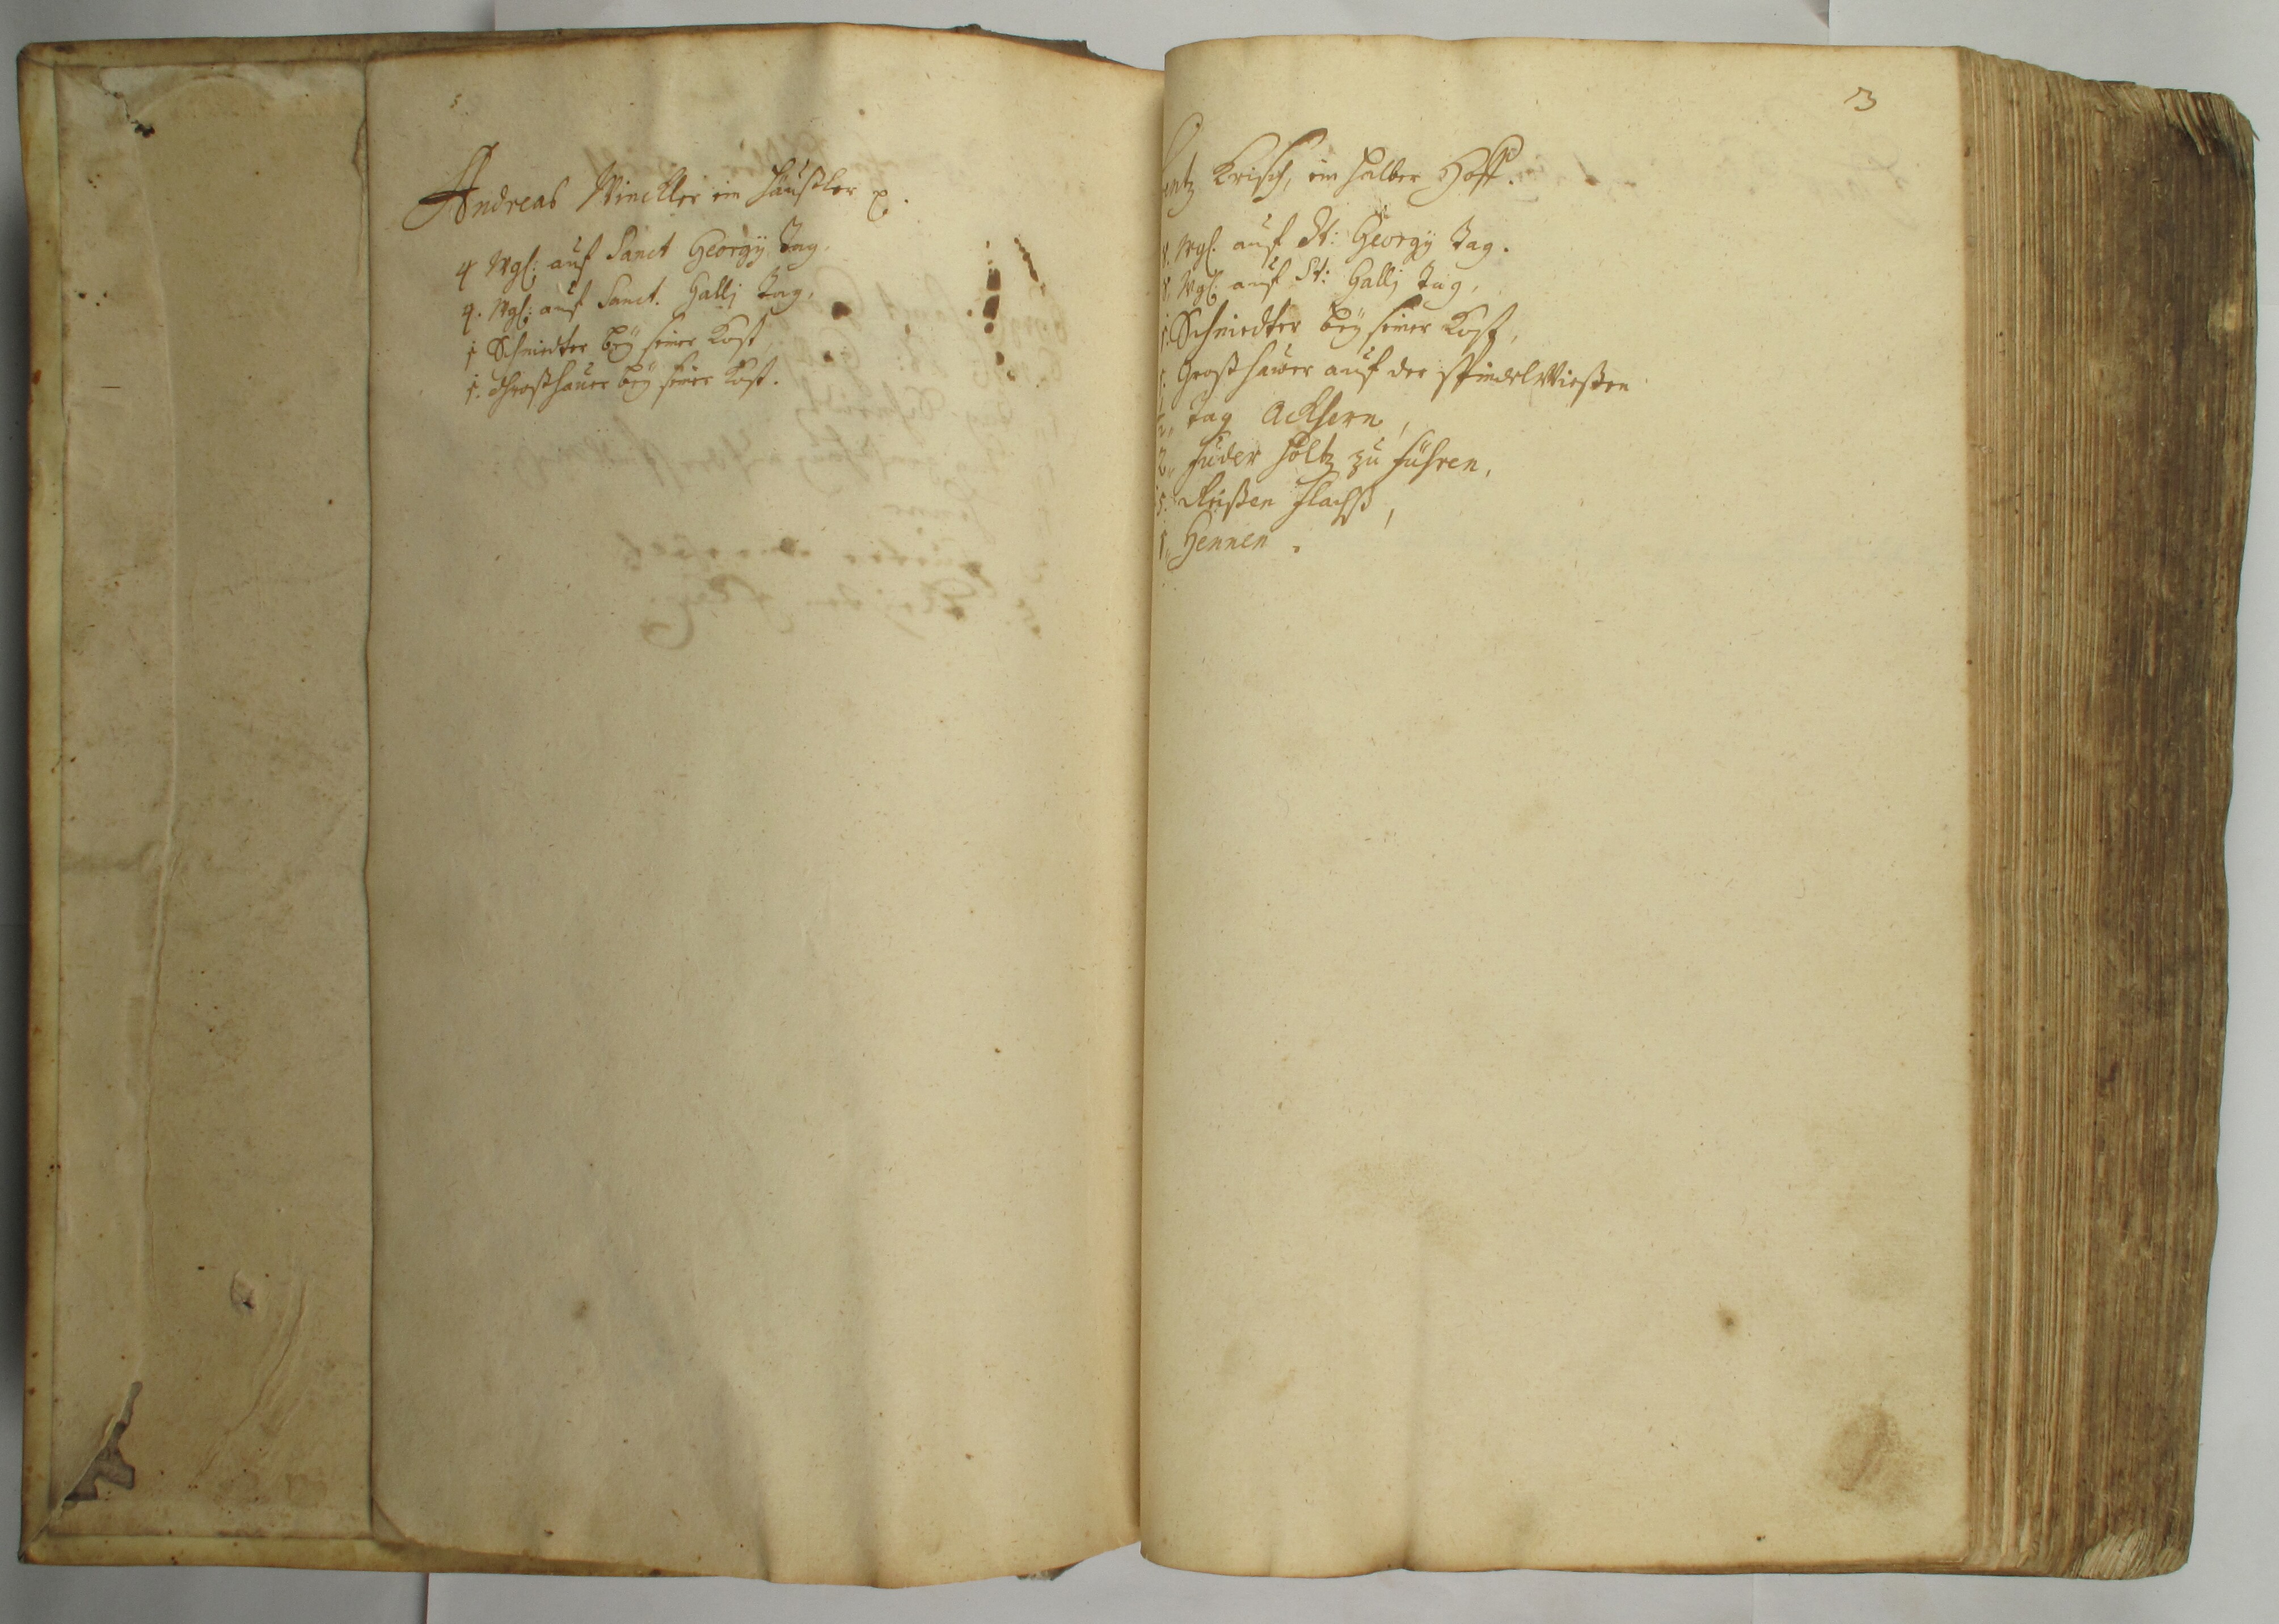 Andreas Winckler ein Häußler
4 Wgl: auf Sanct Georgÿ Tag,
4. Wgl: auf Sanct. Gallj Tag,
1 Schniedter beÿ seiner Kost,
1. Graßhauer beÿ seiner Kost.
3
Krisch, ein halber Hoff.
8. Wgl. auf St: Georgÿ Tag.
8. Wgl. auf St: Gallj Tag,
1. Schniedter beÿ seiner Kost,
1. Graßhauer auf der Spindelwießen
Tag Ackhern,
2, Fuder Holtz zu führen,
5. Reißen Flachß,
1, Hennen.